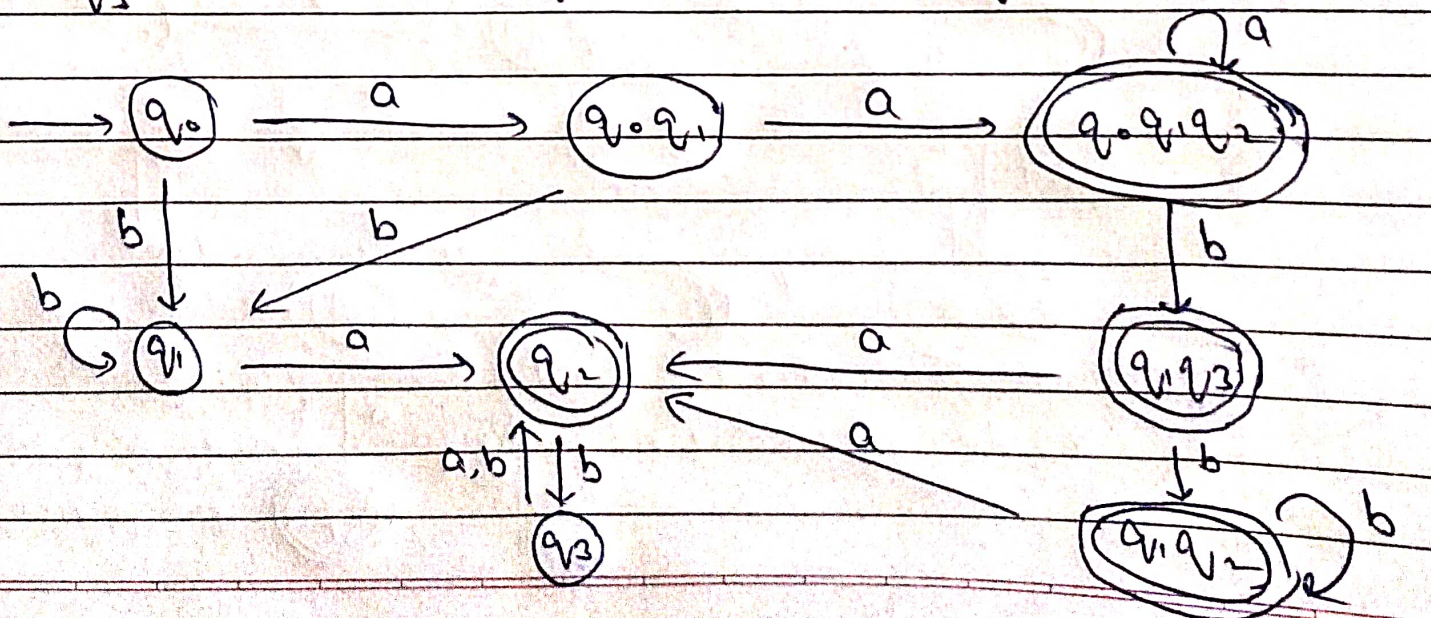 a
q0 a q0q1 a q0q1q2
b b b
b q1 a q2 a q1q3
a,b b a b
q3 q1q2 b